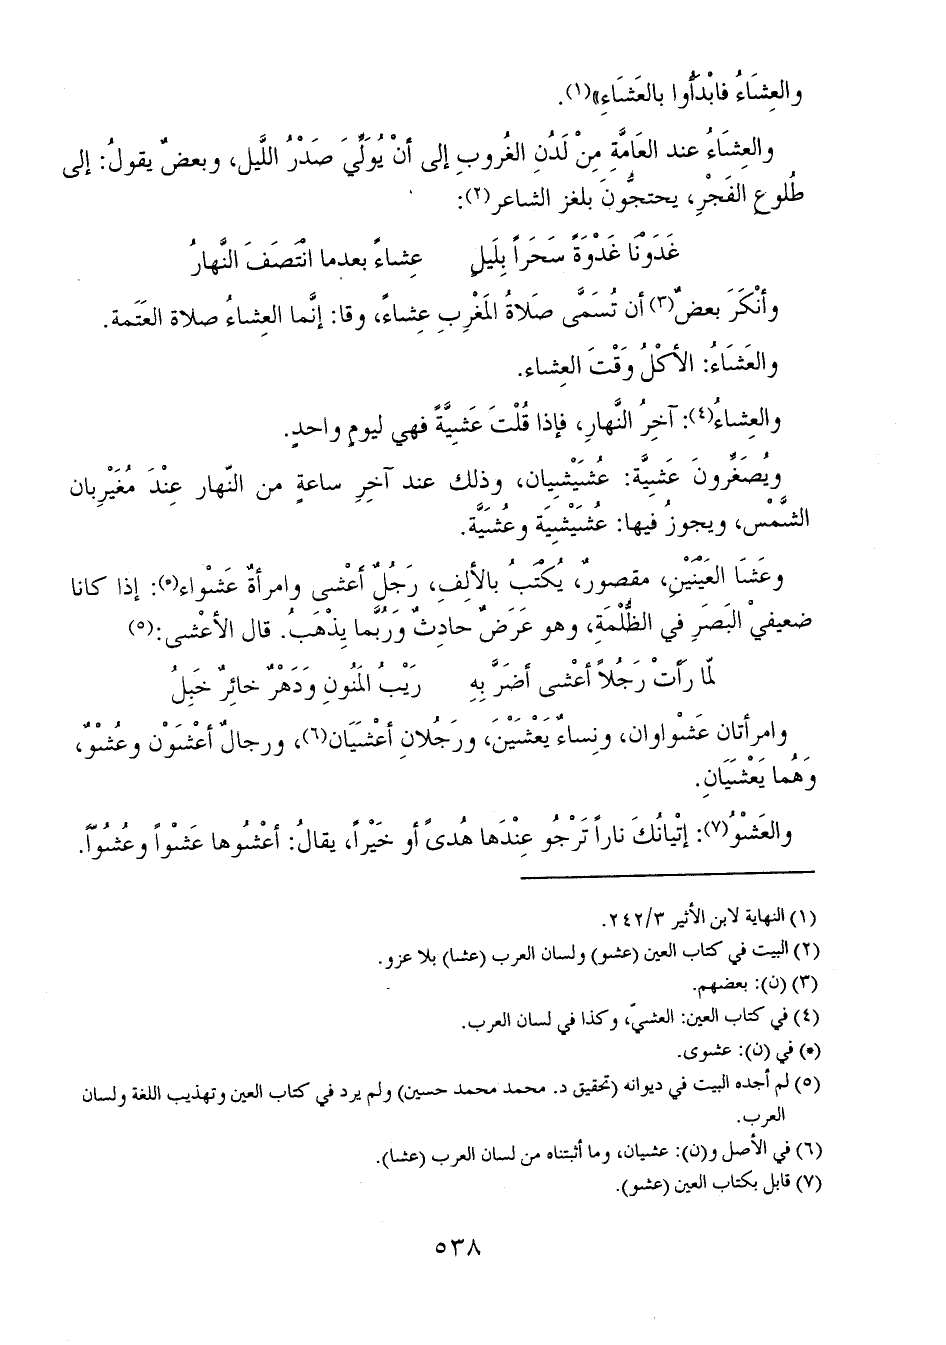 والعِشَاءُ فابْدَأُوا بالعَشَاءِ»(١).
والعِشَاءُ عند العَامَّةِ مِنْ لَدُنِ الغُروبِ إلى أنْ يُوَلِّيَ صَدْرُ اللَّيل، وبعضٌ يقولُ: إلى
طُلوع الفَجْرِ، يحتجُّونَ بلغز الشاعر(٢):
غَدَوْنَا غَدْوَةً سَحَراً بِلَيلٍ عِشاءً بعدما انْتَصَفَ النَّهارُ
وأنْكَرَ بعضٌ(٣) أن تُسَمَّى صَلاةُ المَغْرِبِ عِشاءً، وقا: إنَّما العِشاءُ صلاة العَتَمة.
والعَشَاءُ: الأكْلُ وَقْتَ العِشاء.
والعِشاءُ(٤): آخِرُ النَّهارِ، فإذا قُلْتَ عَشيَّةً فهي ليومٍ واحدٍ.
ويُصَغِّرونَ عَشِيَّة: عُشَيْشِيان، وذلك عند آخِرِ ساعةٍ من النّهار عِنْدَ مُغَيْرِبان
الشَّمْس، ويجوزُ فيها: عُشَيْشِيَة وعُشَيَّة.
وعَشَا العَيْنَيْنِ، مقصورٌ، يُكْتَبُ بالألِفِ، رَجُلٌ أعْشى وامرأةٌ عَشْواء(*): إذا كانا
ضعيفيْ البَصَرِ في الظُّلْمَةِ، وهو عَرَضٌ حادِثٌ وَرُبَّما يذْهَبُ. قال الأعْشى:(٥)
لمّا رَأَتْ رَجُلاً أعْشى أضَرَّ بِهِ رَيْبُ المَنُونِ وَدَهْرٌ خائِرٌ خَبِلُ
وامرأتان عَشْواوان، ونِساءٌ يَعْشَيْنَ، ورَجُلانِ أعْشَيَان(٦)، ورجالٌ أعْشَوْن وعُشْوٌ،
وَهُما يَعْشَيَانِ.
والعَشْوُ(٧): إتْيانُكَ ناراً تَرْجُو عِنْدَها هُدىً أو خَيْراً، يقالُ: أعْشُوها عَشْواً وعُشُوّاً.
(١) النهاية لابن الأثير ٢٤٢/٣.
(٢) البيت في كتاب العين (عشو) ولسان العرب (عشا) بلا عزو.
(٣) (ن): بعضهم.
(٤) في كتاب العين: العشيّ، وكذا في لسان العرب.
(*) في (ن): عشوى.
(٥) لم أجده البيت في ديوانه (تحقيق د. محمد محمد حسين) ولم يرد في كتاب العين وتهذيب اللغة ولسان
العرب.
(٦) في الأصل و(ن): عشيان، وما أثبتناه من لسان العرب (عشا).
(٧) قابل بكتاب العين (عشو).
٥٣٨